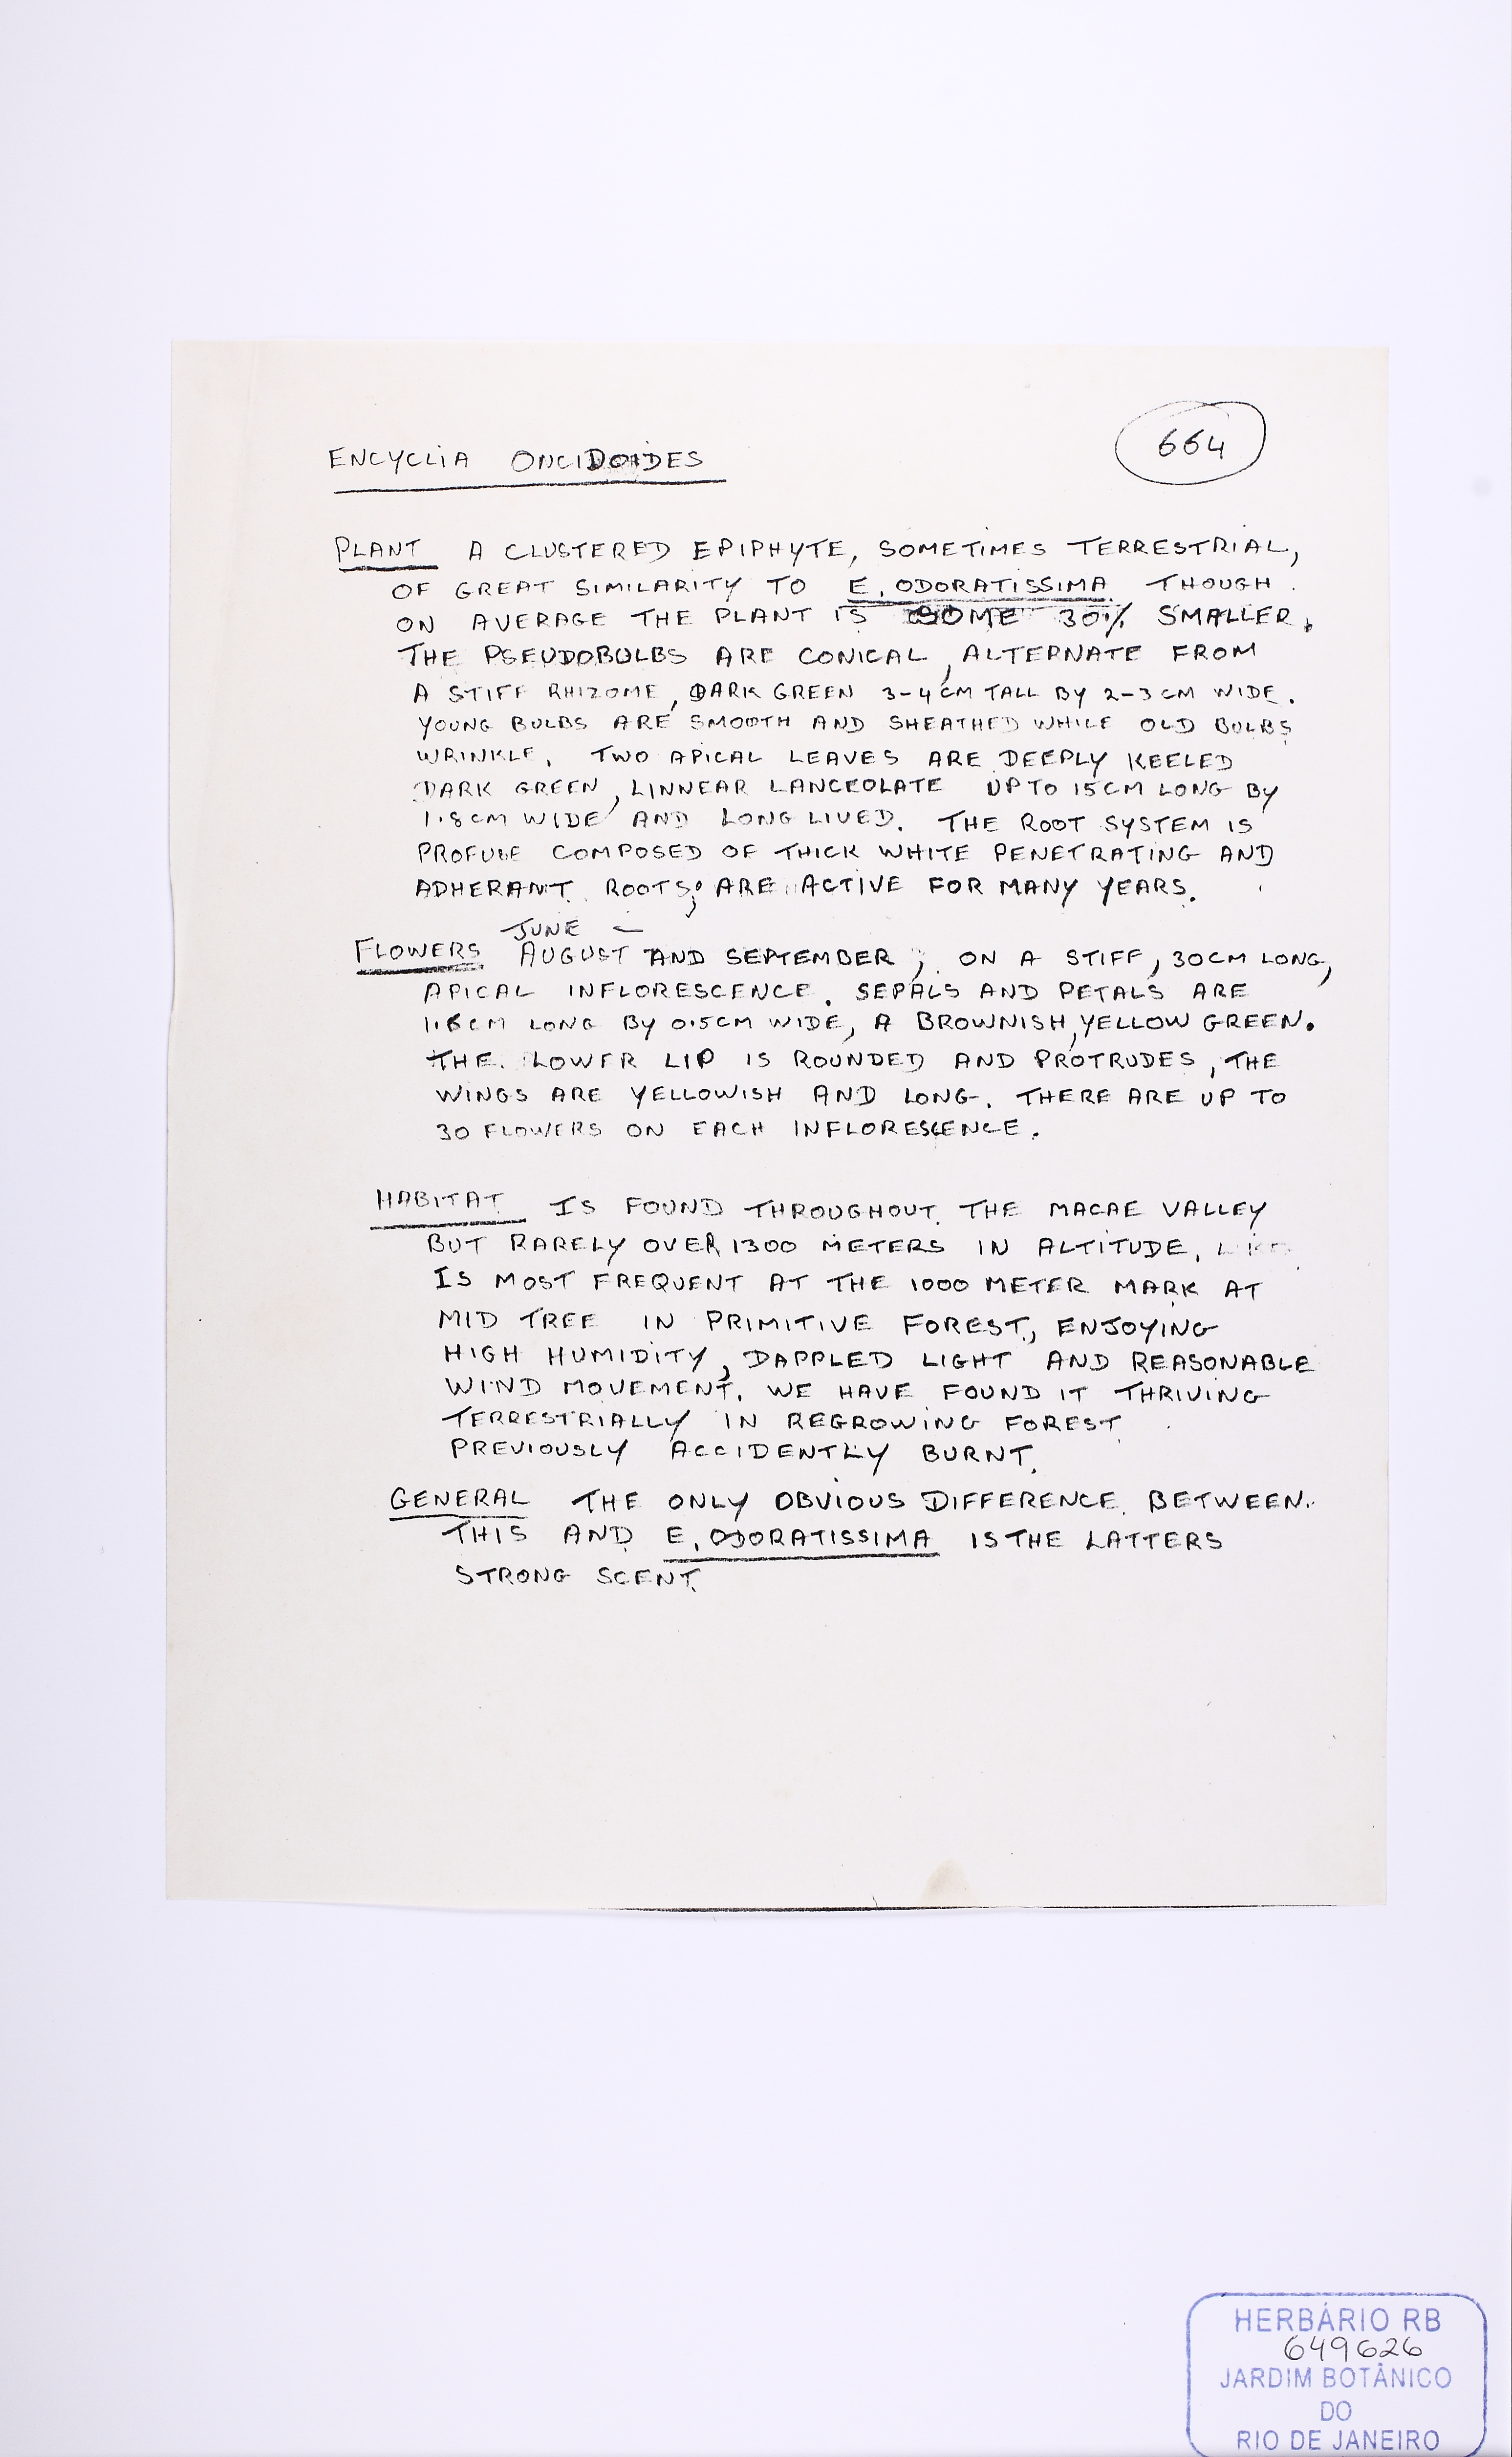 664
ENCYCLIA ONCIDOIDES
PLANT A CLUSTERED EPIPHYTE, SOMETIMES TERRESTRIAL,
OF GREAT SIMILARITY TO E. ODORATISSIMA THOUGH
ON AVERAGE THE PLANT IS SOME 30% SMALLER.
THE PSEUDOBULBS ARE CONICAL, ALTERNATE FROM
A STIFF RHIZOME, DARK GREEN 3-4CM TALL BY 2-3CM WIDE.
YOUNG BULBS ARE SMOOTH AND SHEATHED WHILE OLD BULBS
WRINKLE. TWO APICAL LEAVES ARE DEEPLY KEELED
DARK GREEN, LINNEAR LANCEOLATE UP TO 15CM LONG BY
1.8CM WIDE AND LONG LIVED. THE ROOT SYSTEM IS
PROFUSE COMPOSED OF THICK WHITE PENETRATING AND
ADHERANT ROOTS; ARE ACTIVE FOR MANY YEARS.
JUNE -
FLOWERS AUGUST AND SEPTEMBER; ON A STIFF, 30CM LONG,
APICAL INFLORESCENCE. SEPALS AND PETALS ARE
LONG BY 0.5CM WIDE, A BROWNISH, YELLOW GREEN.
THE LOWER LIP IS ROUNDED AND PROTRUDES, THE
WINGS ARE YELLOWISH AND LONG. THERE ARE UP TO
30 FLOWERS ON EACH INFLORESCENCE.
HABITAT IS FOUND THROUGHOUT THE MACAE VALLEY
BUT RARELY OVER 1300 METERS IN ALTITUDE.
IS MOST FREQUENT AT THE 1000 METER MARK AT
MID TREE IN PRIMITIVE FOREST, ENJOYING
HIGH HUMIDITY, DAPPLED LIGHT AND REASONABLE
WIND MOVEMENT. WE HAVE FOUND IT THRIVING
TERRESTRIALLY IN REGROWING FOREST
PREVIOUSLY ACCIDENTLY BURNT.
GENERAL THE ONLY OBVIOUS DIFFERENCE BETWEEN
THIS AND E. ODORATISSIMA IS THE LATTERS
STRONG SCENT.
HERBÁRIO RB
649626
JARDIM BOTÂNICO
DO
RIO DE JANEIRO